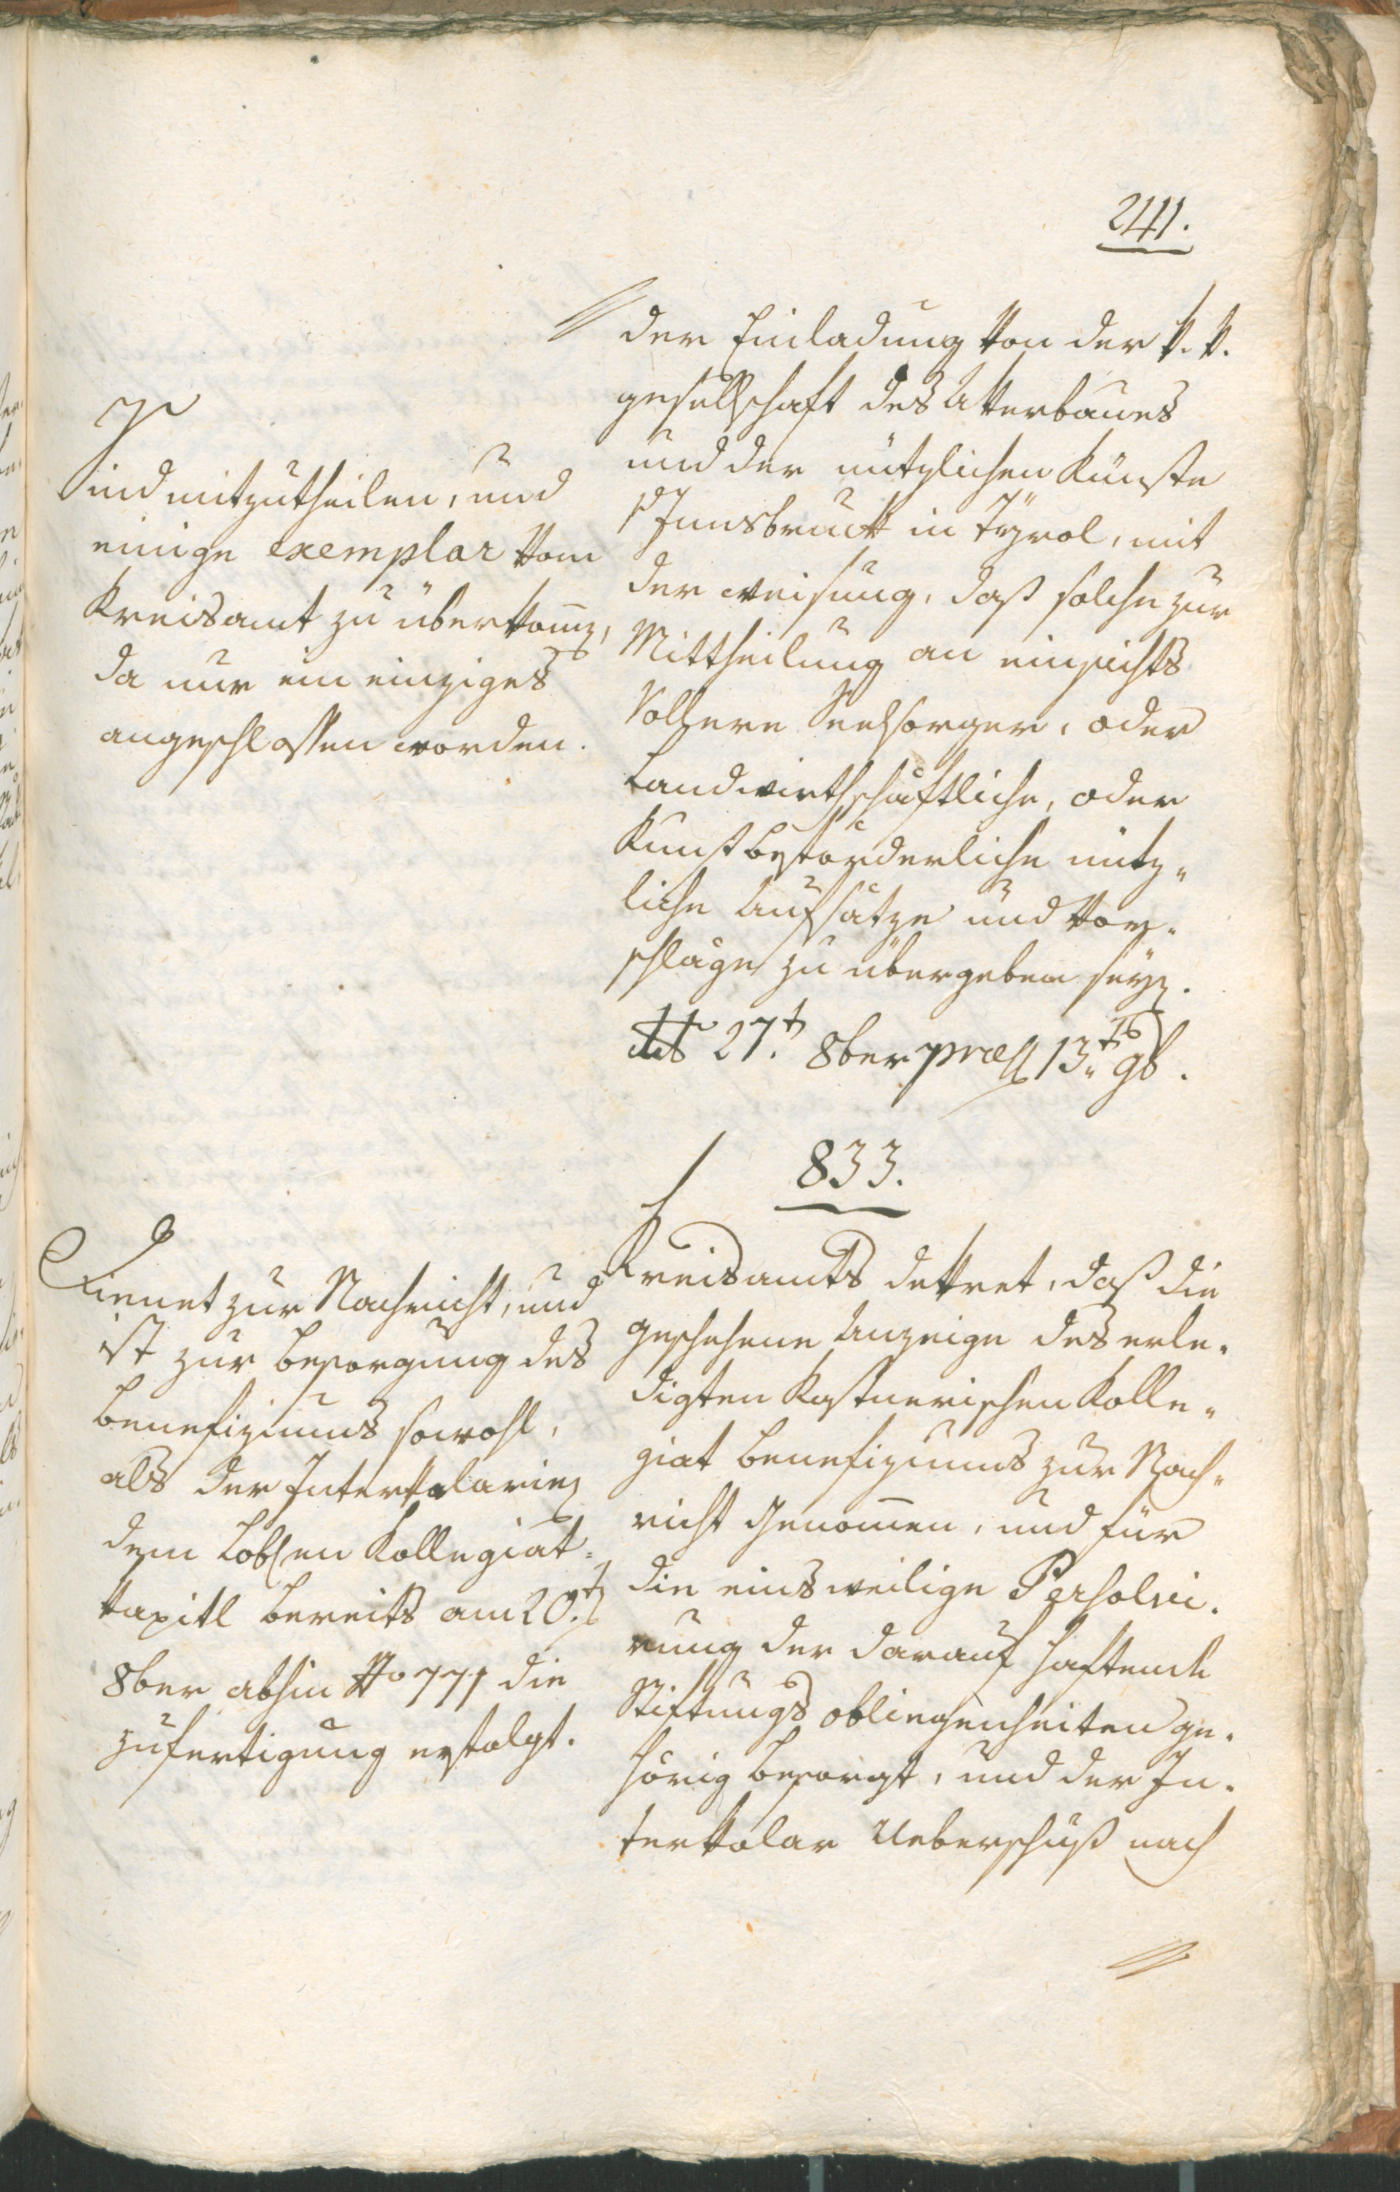 241.
Sind mitzutheilen, und
einige exemplar vom
Kreisamt zu überkom̄en,
da nur ein einziges
angeschlossen worden.
der Einladung von der k. k.
gesellschaft des Akerbaues
und der nützlichen Künste
zu Innsbruck in Tÿrol, mit
der weisung, daß solche zur
Mittheilung an einsichts
vollere Seelsorger, oder
Landwirthschäftliche, oder
Kunstbeförderliche nütz„
liche Aufsätze und Vor„
schläge zu übergeben seÿen.
dto 27.t 8ber præs 13.ts 9b.
833.
Dienet zur Nachricht, und
ist zur besorgung des
Benefiziums sowohl,
als der Interkalarien
dem Lobl.en Kollegiat„
kapitl bereits am 20.t
8ber abhin No 771 die
zufertigung erfolgt.
Kreisamts dekret, daß die
geschehene Anzeige des erle„
digten Kastnerischen Kolle„
giat benefiziums zur Nach„
richt genom̄en, und für
die einsweilige Persolvi„
rung der darauf haftende
Stiftungs obliegenheiten ge„
hörig besorgt, und der In„
terkalar Ueberschuß nach